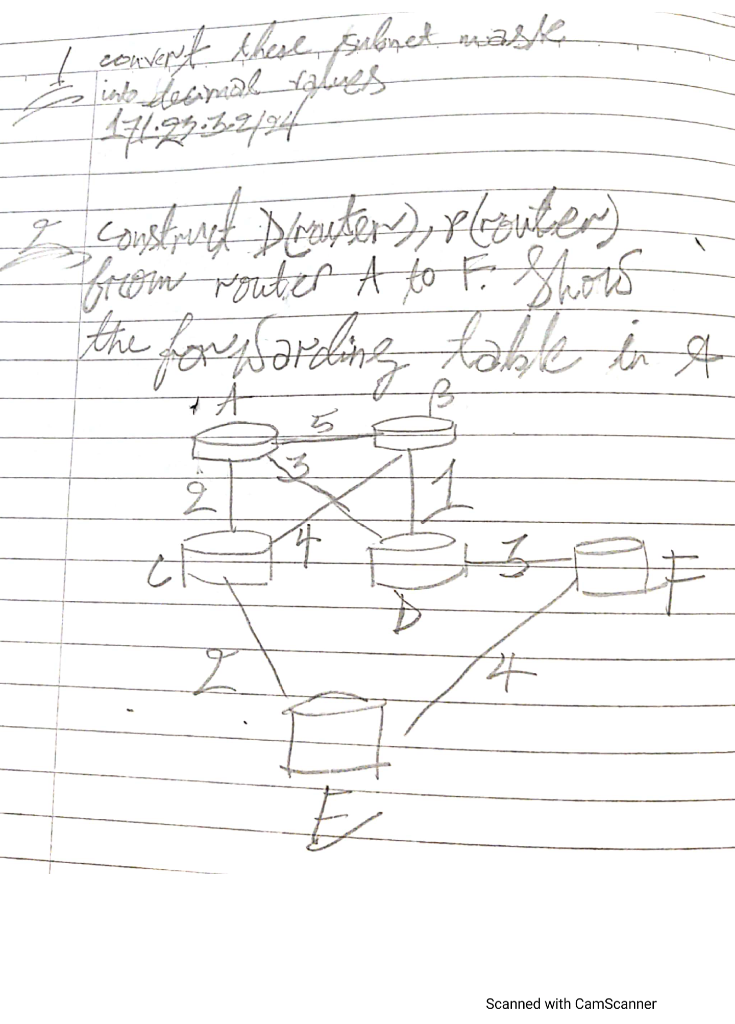 1 convert these subnet mask
into decimal values
171.23.3.2/24
2 construct D(router), P(router)
from router A to F. Show
the forwarding table in A
A B
5
3
2 1
4 3
C D F
2 4
E
Scanned with CamScanner